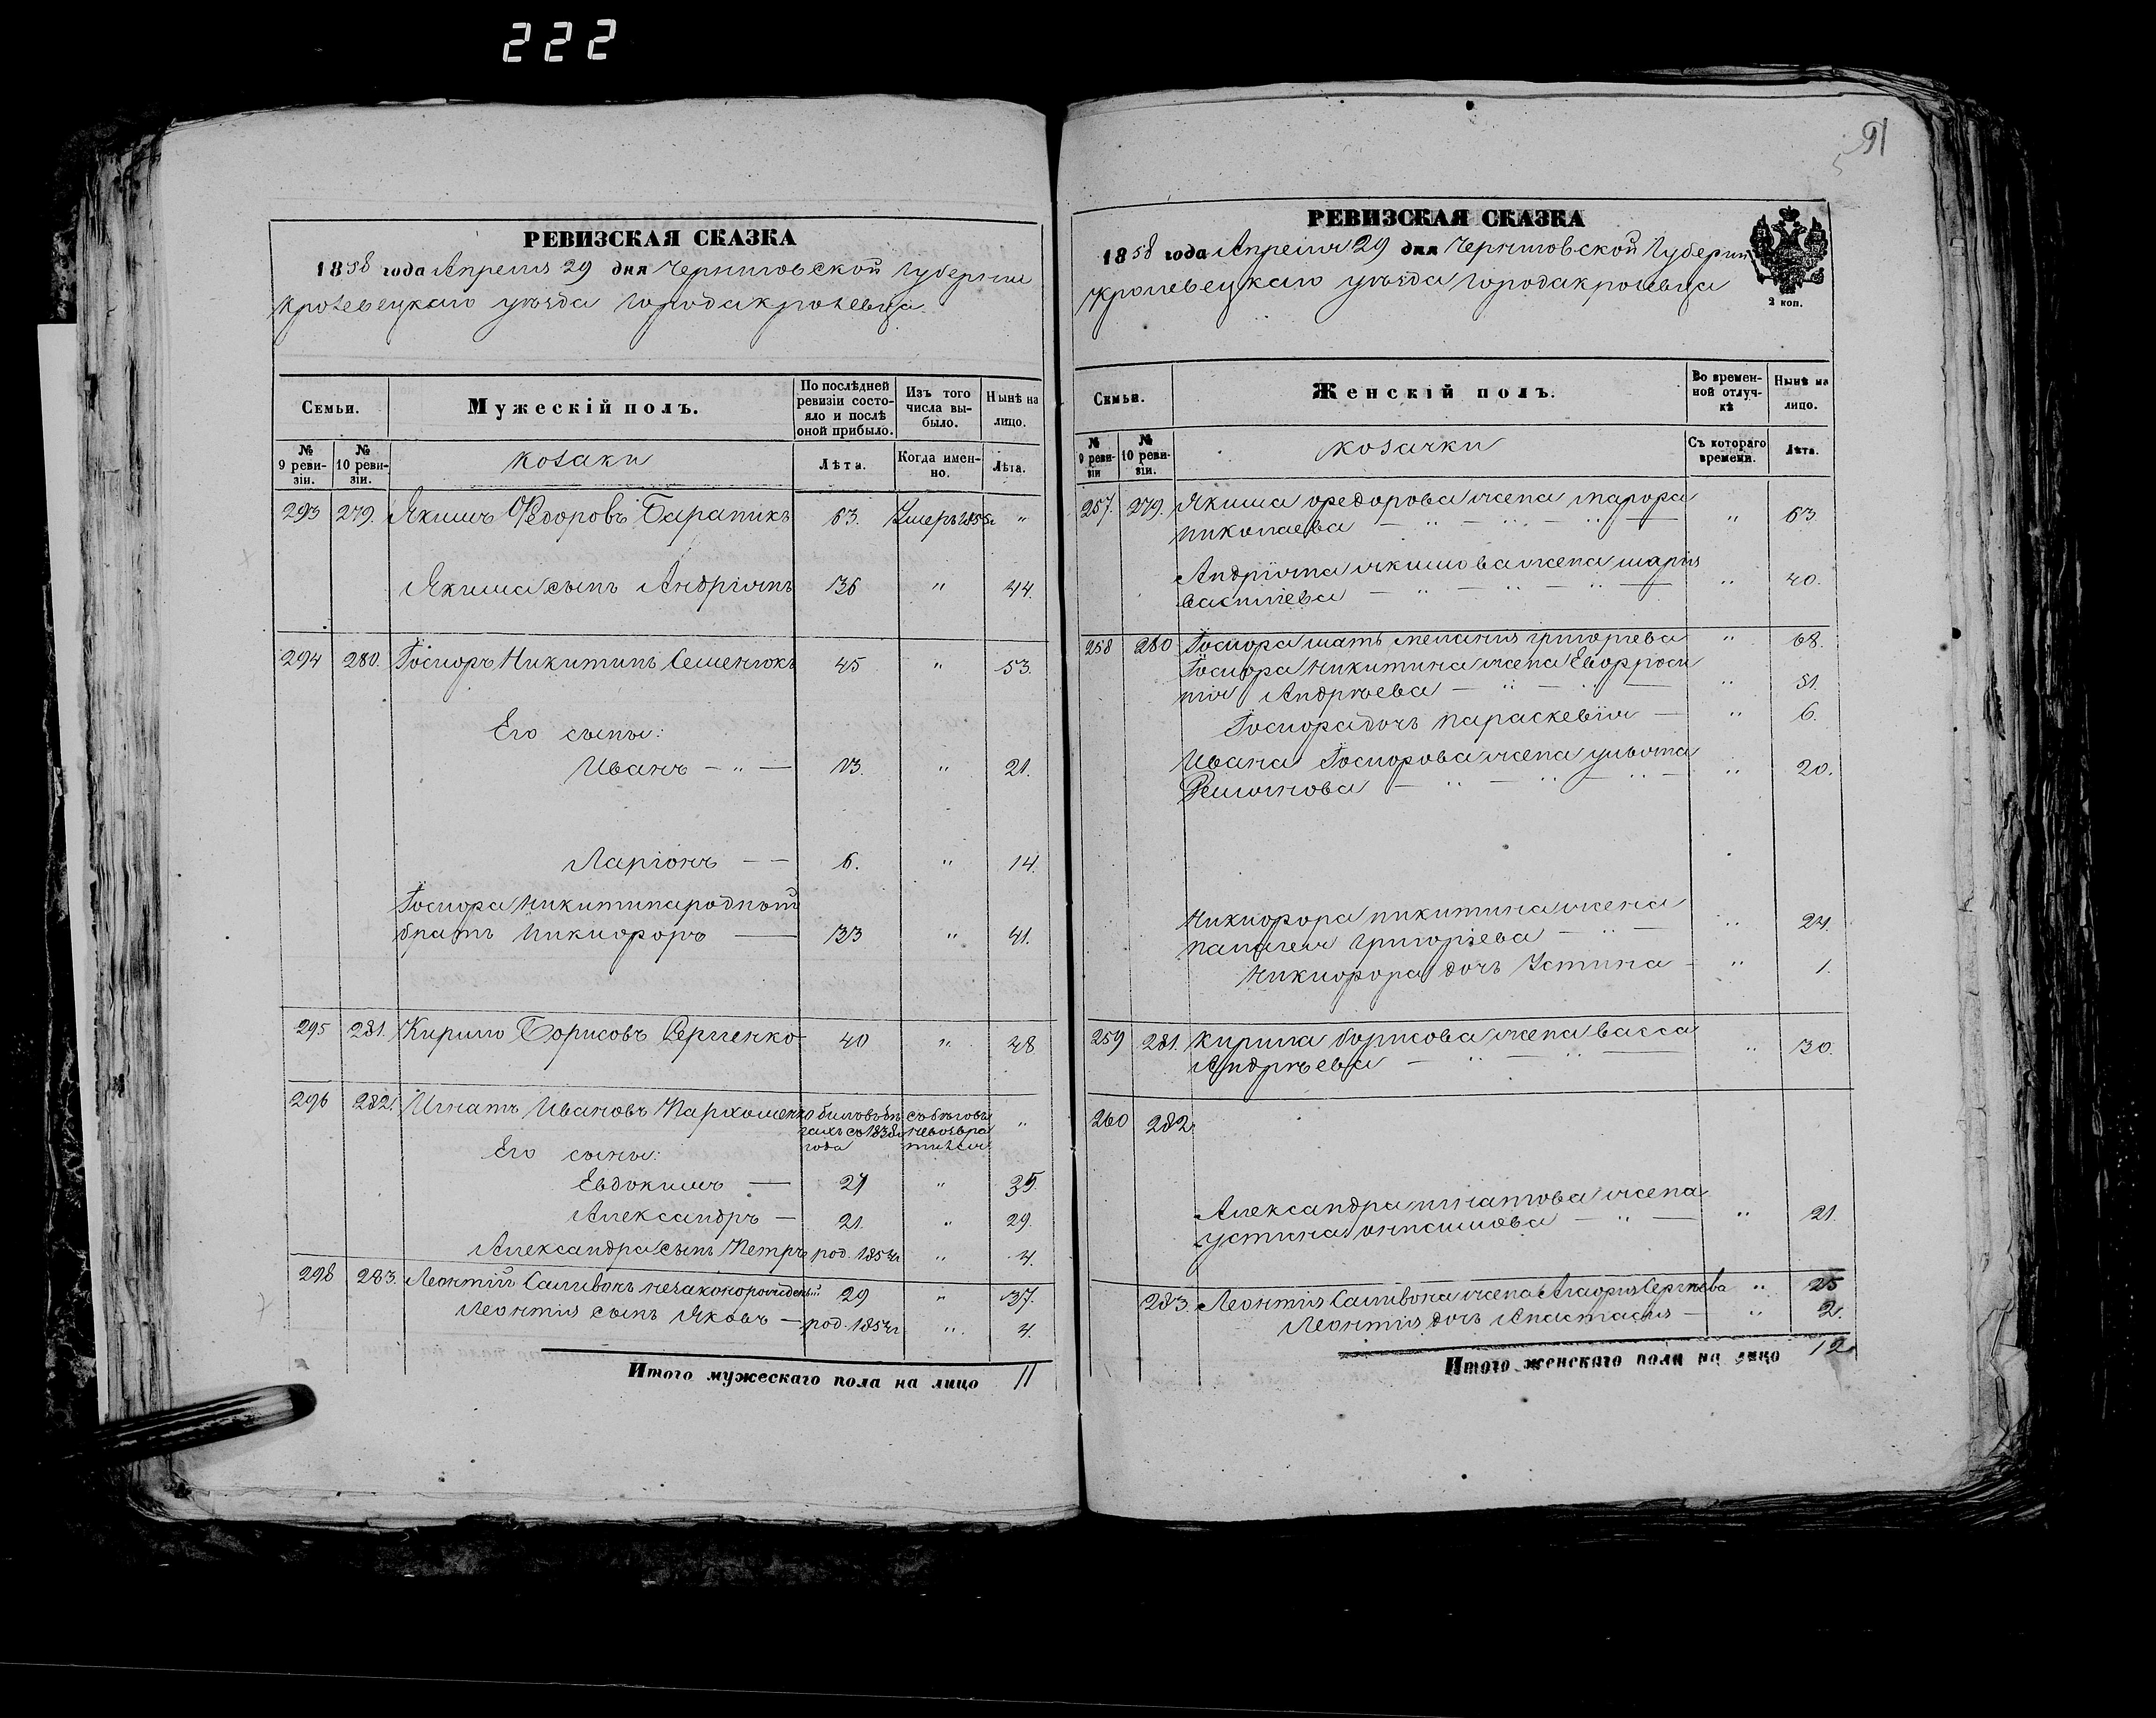 222
РЕВИЗСКАЯ СКАЗКА
1858 года Апреля 29 дня Черниговской Губернии
Кролевецкаго уѣзда города Кролевца
Семьи.
Мужескій полъ.
По послѣдней ревизіи состояло и послѣ оной прибыло.
Изъ того числа выбыло.
Нынѣ на лицо.
№ 9 ревизіи.
№ 10 ревизіи.
Козаки
Лѣта.
Когда именно.
Лѣта.
293 279. Якимъ Федоровъ 63. Умеръ 1855 "
Якима сынъ Андріянъ 36 " 44.
294 280. Никитинъ Семенюкъ 45 " 53.
Его сыны:
Иванъ — " — 13. " 21.
Ларіонъ — — 6. " 14.
Никитина родный
братъ Никифоръ — 33 " 41.
295 281. Кирило Борисовъ Сергіенко 40 " 48
296 282. Игнатъ Ивановъ Пархоменко былъ въ бѣ съ бѣговъ "
гахъ съ 1838 невозвра
года тился
Его сыны:
Евдокимъ — 27 " 35.
Александръ — 21. " 29.
Александра сынъ Петръ род. 1854 " 4.
298 283. Леонтій Саливонъ незаконорожденый 29 " 37.
Леонтія сынъ Яковъ — род. 1854 " 4.
Итого мужескаго пола на лицо 11
91
РЕВИЗСКАЯ СКАЗКА
1858 года Апреля 29 дня Черниговской Губерніи
Кролевецкаго уѣзда города Кролевца
2 коп.
Семьи.
Женскій полъ.
Во временной отлучкѣ
Нынѣ на лицо.
№ 9 ревизіи
№ 10 ревизіи.
козачки
Съ котораго времени.
Лѣта.
257. 279. Якима Федорова жена Марфа
Николаева — " — " — " — " 63.
Андріяна Якимова жена Марія
Василіева — " — " — " — " 40.
258 280 мать Меланія Григоріева " 68.
Никитина жена Евфроси
нія Андрѣева — " — " — " 51.
дочь Параскевія — " 6.
Ивана жена Ульяна
— " — " — " — " 20.
Никифора Никитина жена
Пелагея Григоріева — " — " 24.
Никифора дочь Устина — " 1.
259 281. Кирила Борисова жена Васса
Андрѣева — " — " — " 30.
260 282.
Александра Игнатова жена
Устина Онисимова — " — " 21.
283. Леонтія Саливона жена Агафія Сергѣева " 25
Леонтія дочь Анастасія — " 2.
Итого женскаго пола на лицо 12